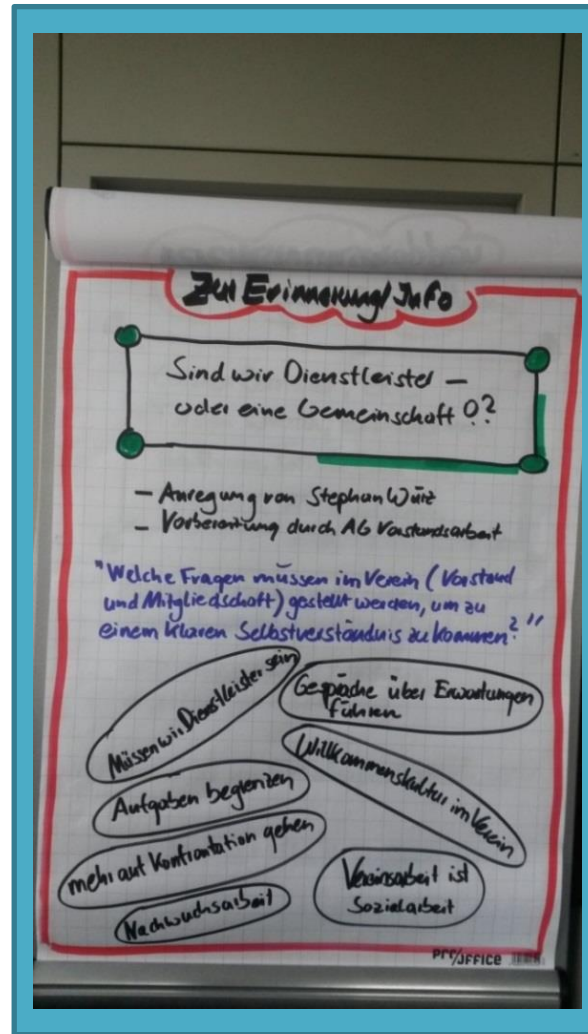 Zur Erinnerung/Info
Sind wir Dienstleister –
oder eine Gemeinschaft ??
– Anregung von Stephan Würz
– Vorbereitung durch AG Vorstandsarbeit
"Welche Fragen müssen im Verein (Vorstand
und Mitgliedschaft) gestellt werden, um zu
einem klaren Selbstverständnis zu kommen?"
Müssen wir Dienstleister sein
Gespräche über Erwartungen
führen
Aufgaben begrenzen
Willkommenskultur im Verein
mehr auf Konfrontation gehen
Vereinsarbeit ist
Sozialarbeit
Nachwuchsarbeit